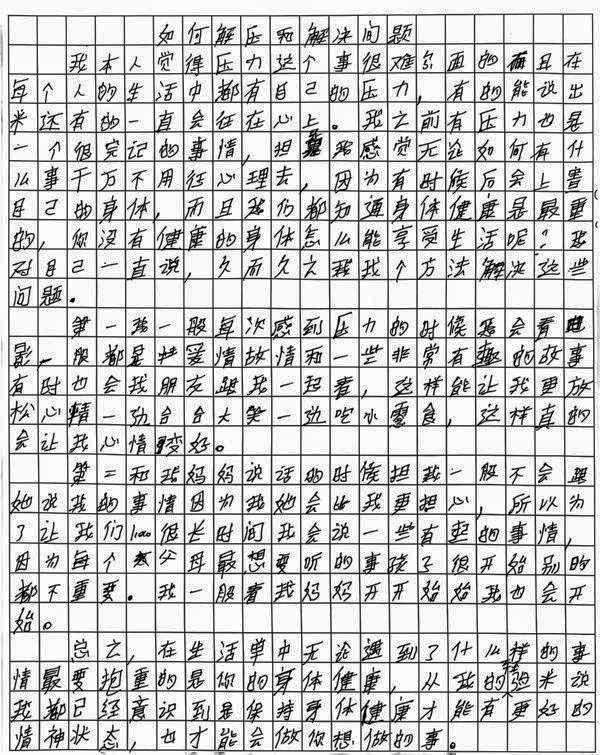 如何解压和解决问题
我本人觉得压力这个事很难尔面的而且在
每个人的生活中都有自己的压力，有的能说出
来还有的一直会往在心上。我之前有压力也是
一个很完记的事情，担我感觉无论如何有什
么事千万不用往心理去，因为有时候后会上害
自己的身体，而且我们都知道身体健康是最重
的，你没有健康的身体怎么能享受生活呢？我
对自己一直说，久而久之我找个方法解决这些
问题。
第一我一般每次感到压力的时候会看电
影，一般都是看爱情故情和一些非常有趣的故事
有时也会找朋友跟我一起看，这样能让我更放
松心情一边台台大笑一边吃小零食，这样真的
会让我心情变好。
第二和我妈妈说话的时候担我一般不会跟
她说我的事情因为我她会比我更担心，所以为
了让我们很长时间我会说一些有趣的事情，
因为每个父母最想要听的事孩子很开始别的
都不重要。我一般看我妈妈开开始始我也会开
始。
总之，在生活单中无论遇到了什么样的事
情最要抱重的是你的身体健康，从我的经来说
我都已经意识到是保持身体健康才能有更好的
情神状态，也才能会做你想做的事。